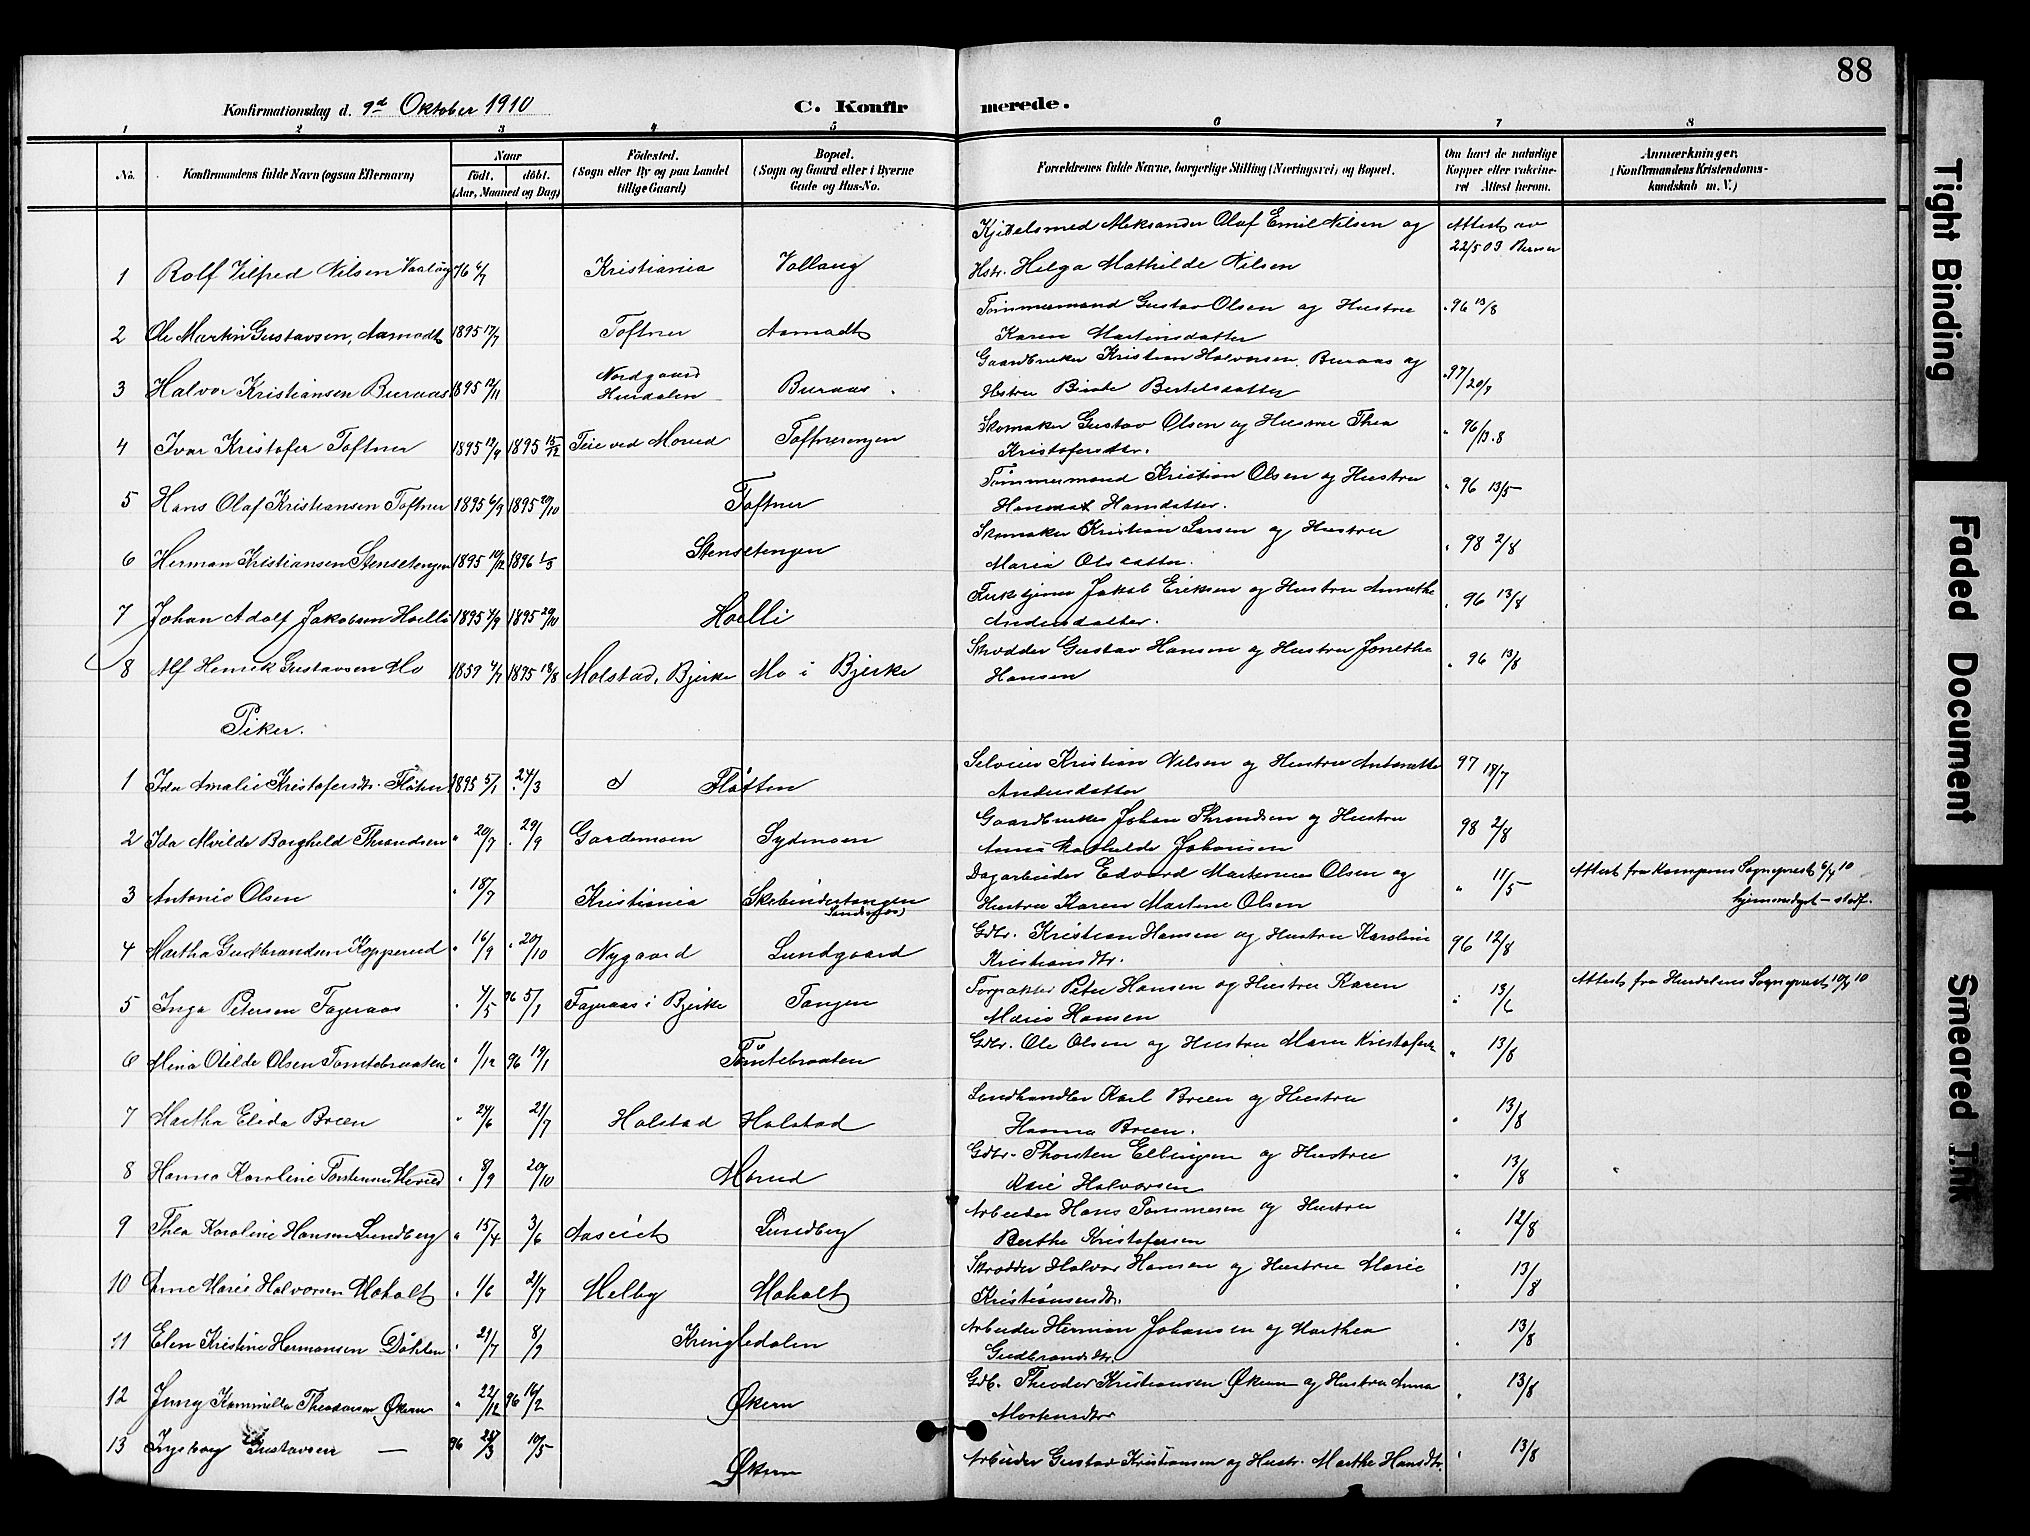 88
Konfirmationsdag d. 9d Oktober 1910
C. Konfirmerede.
1 2 3 4 5 6 7 8
No. Konfirmandens fulde Navn (ogsaa Efternavn)
Naar født. døbt. (Aar, Maaned og Dag)
Fødested. (Sogn eller By og paa Landet tillige Gaard)
Bopæl. (Sogn og Gaard eller i Byerne Gade og Hus-No.
Forældrenes fulde Navne, borgerlige Stilling (Næringsvei) og Bopæl.
Om havt de naturlige Kopper eller vakcineret. Attest herom.
Anmærkninger. (Konfirmandens Kristendomskundskab m. V.)
Kjedelsmed Aleksander Olaf Emil Nilsen og Attest av 22/5 09
1 Rolf Vilfred Nilsen 96 Kristiania Hstr. Helga Mathilde Nilsen
2 Ole Martin Gustavsen, Aamodt 1895 17/7 Toftner Aamodt Tømmermand Gustav Olsen og Hustru 96 13/8
Karen Martinsdatter
3 Halvor Kristiansen Buraas 1895 12/11 Nordgaard Hurdalen Buraas Gaardbruker Kristian Halvorsen Buraas og 97 20/7
Hstru Birthe Bertelsdatter
4 Ivar Kristofer Toftner 1895 12/9 1895 15/12 Teie ved Morud Toftnerengen Skomaker Gustav Olsen og Hustru Thea 96 13.8
Kristofersdtr.
5 Hans Olaf Kristiansen Toftner 1895 6/9 1895 20/10 Toftner Tømmermand Kristian Olsen og Hustru 96 13/5
Hansdatter.
6 Herman Kristiansen Stensetengen 1895 10/12 1896 1/3 Stensetengen Skomaker Kristian Larsen og Hustru 98 2/8
Maria Olsdatter.
7 Johan Adolf Jakobsen Hoelli 1895 2/9 1895 20/10 Hoelli Jakob Eriksen og Hustru Annethe 96 13/8
Andersdatter.
8 Alf Henrik Gustavsen Mo 1859 4/7 1895 18/8 Molstad, Bjerke Mo i Bjerke Skrædder Gustav Hansen og Hustru Jonetha 96 13/8
Hansen
Piker.
1 Ida Amalie Kristofersdtr. Fløten 1895 5/1 24/3 Fløtten Selveier Kristian Nilsen og Hustru Antonette 97 18/7
Andersdatter
2 Ida Alvilde Borghild Throndsen 20/7 29/9 Gardemoen Sydmoen Gaardbruker Johan Throndsen og Hustru 98 2/8
Anna Mathilde Johansen
3 Antonie Olsen 18/7 Kristiania Skibindertangen Sundefos) Dagarbeider Edvard Martinius Olsen og 11/5 Attest fra Kampens Sogneprest 6/4 10
Hustru Karen Martine Olsen
4 Martha Gudbrandsen Kopperud 16/9 20/10 Nygaard Lundgaard Gdbr. Kristian Hansen og Hustru Karoline 96 12/8
Kristiansdtr.
5 Inga Petersen Fageraas 4/5 96 5/1 Fageraas i Bjerke Tangen Forpakter Peter Hansen og Hustru Karen 13/6 Attest fra Hurdalens Sogneprest 10/4 10
Marie Hansen
6 Mina Otilde Olsen Tomtebraaten 1/12 96 19/1 Tomtebraaten Gdbr. Ole Olsen og Hustru Maren Kristofersd. 13/8
7 Martha Elida Breen 24/6 21/7 Holstad Holstad Landhandler Karl Breen og Hustru 13/8
Hanna Breen.
8 Hanna Karoline Torstensen Morud 8/9 20/10 Morud Gdbr. Thorsten Ellingsen og Hustru 13/8
Karie Halvorsen
9 Thea Karoline Hansen Lundberg 15/4 3/6 Aaseiet Lundberg Arbeider Hans Tommesen og Hustru 12/8
Berthe Kristofersen
10 Anne Marie Halvorsen Moholt 1/6 21/7 Melby Moholt Skrædder Halvor Hansen og Hustru Marie 13/8
Kristiansendtr.
11 Elen Kristine Hermansen Døhlen 21/7 8/9 Kringledalen Arbeider Herman Johansen og Marthea 13/8
Gudbrandsdtr.
12 Jenny Kammilla Theodorsen Økern 22/12 96 16/2 Økern Gdb. Theodor Kristiansen Økern og Hustru Anna 13/8
Mortensdtr
13 Ingeborg Gustavsen — 96 28/3 10/5 Økern Arbeider Gustav Kristiansen og Hustr. Marthe Hansdtr. 13/8
Tight Binding
Faded Document
Smeared Ink